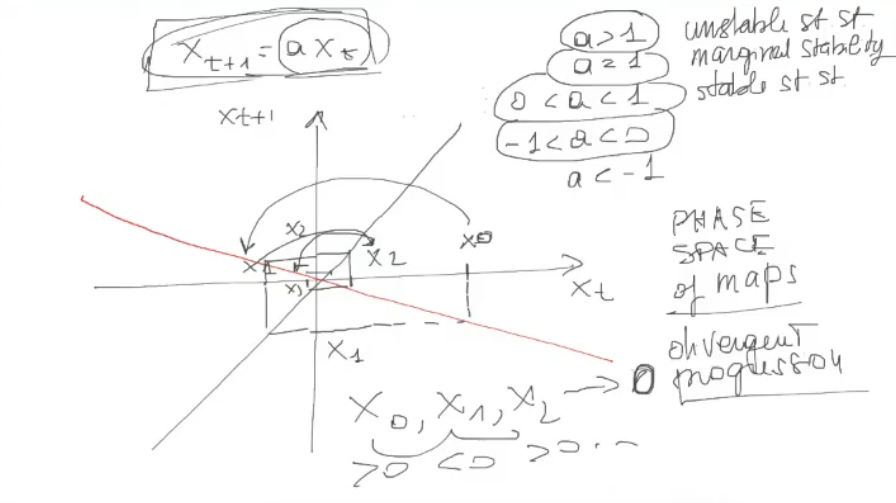 X_{t+1} = a X_t
a > 1 unstable st. st.
a = 1 marginal stability
0 < a < 1 stable st. st.
-1 < a < 0
a < -1
X_{t+1}
X_t
X_0
X_2
X_1
X_2
X_3
X_1
PHASE
SPACE
of maps
divergent
progression
X_0, X_1, X_2 → 0
>0 <0 >0 ...